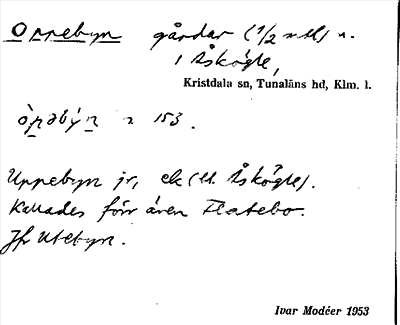 Oppebyn gårdar (1/2 mtl) n.
i Åskögle,
Kristdala sn, Tunaläns hd, Klm. l.
òpəbýn n 153.
Uppebyn jr, ek (tl. Åskögle).
Kallades förr även Flatebo.
Jfr Utebyn.
Ivar Modéer 1953